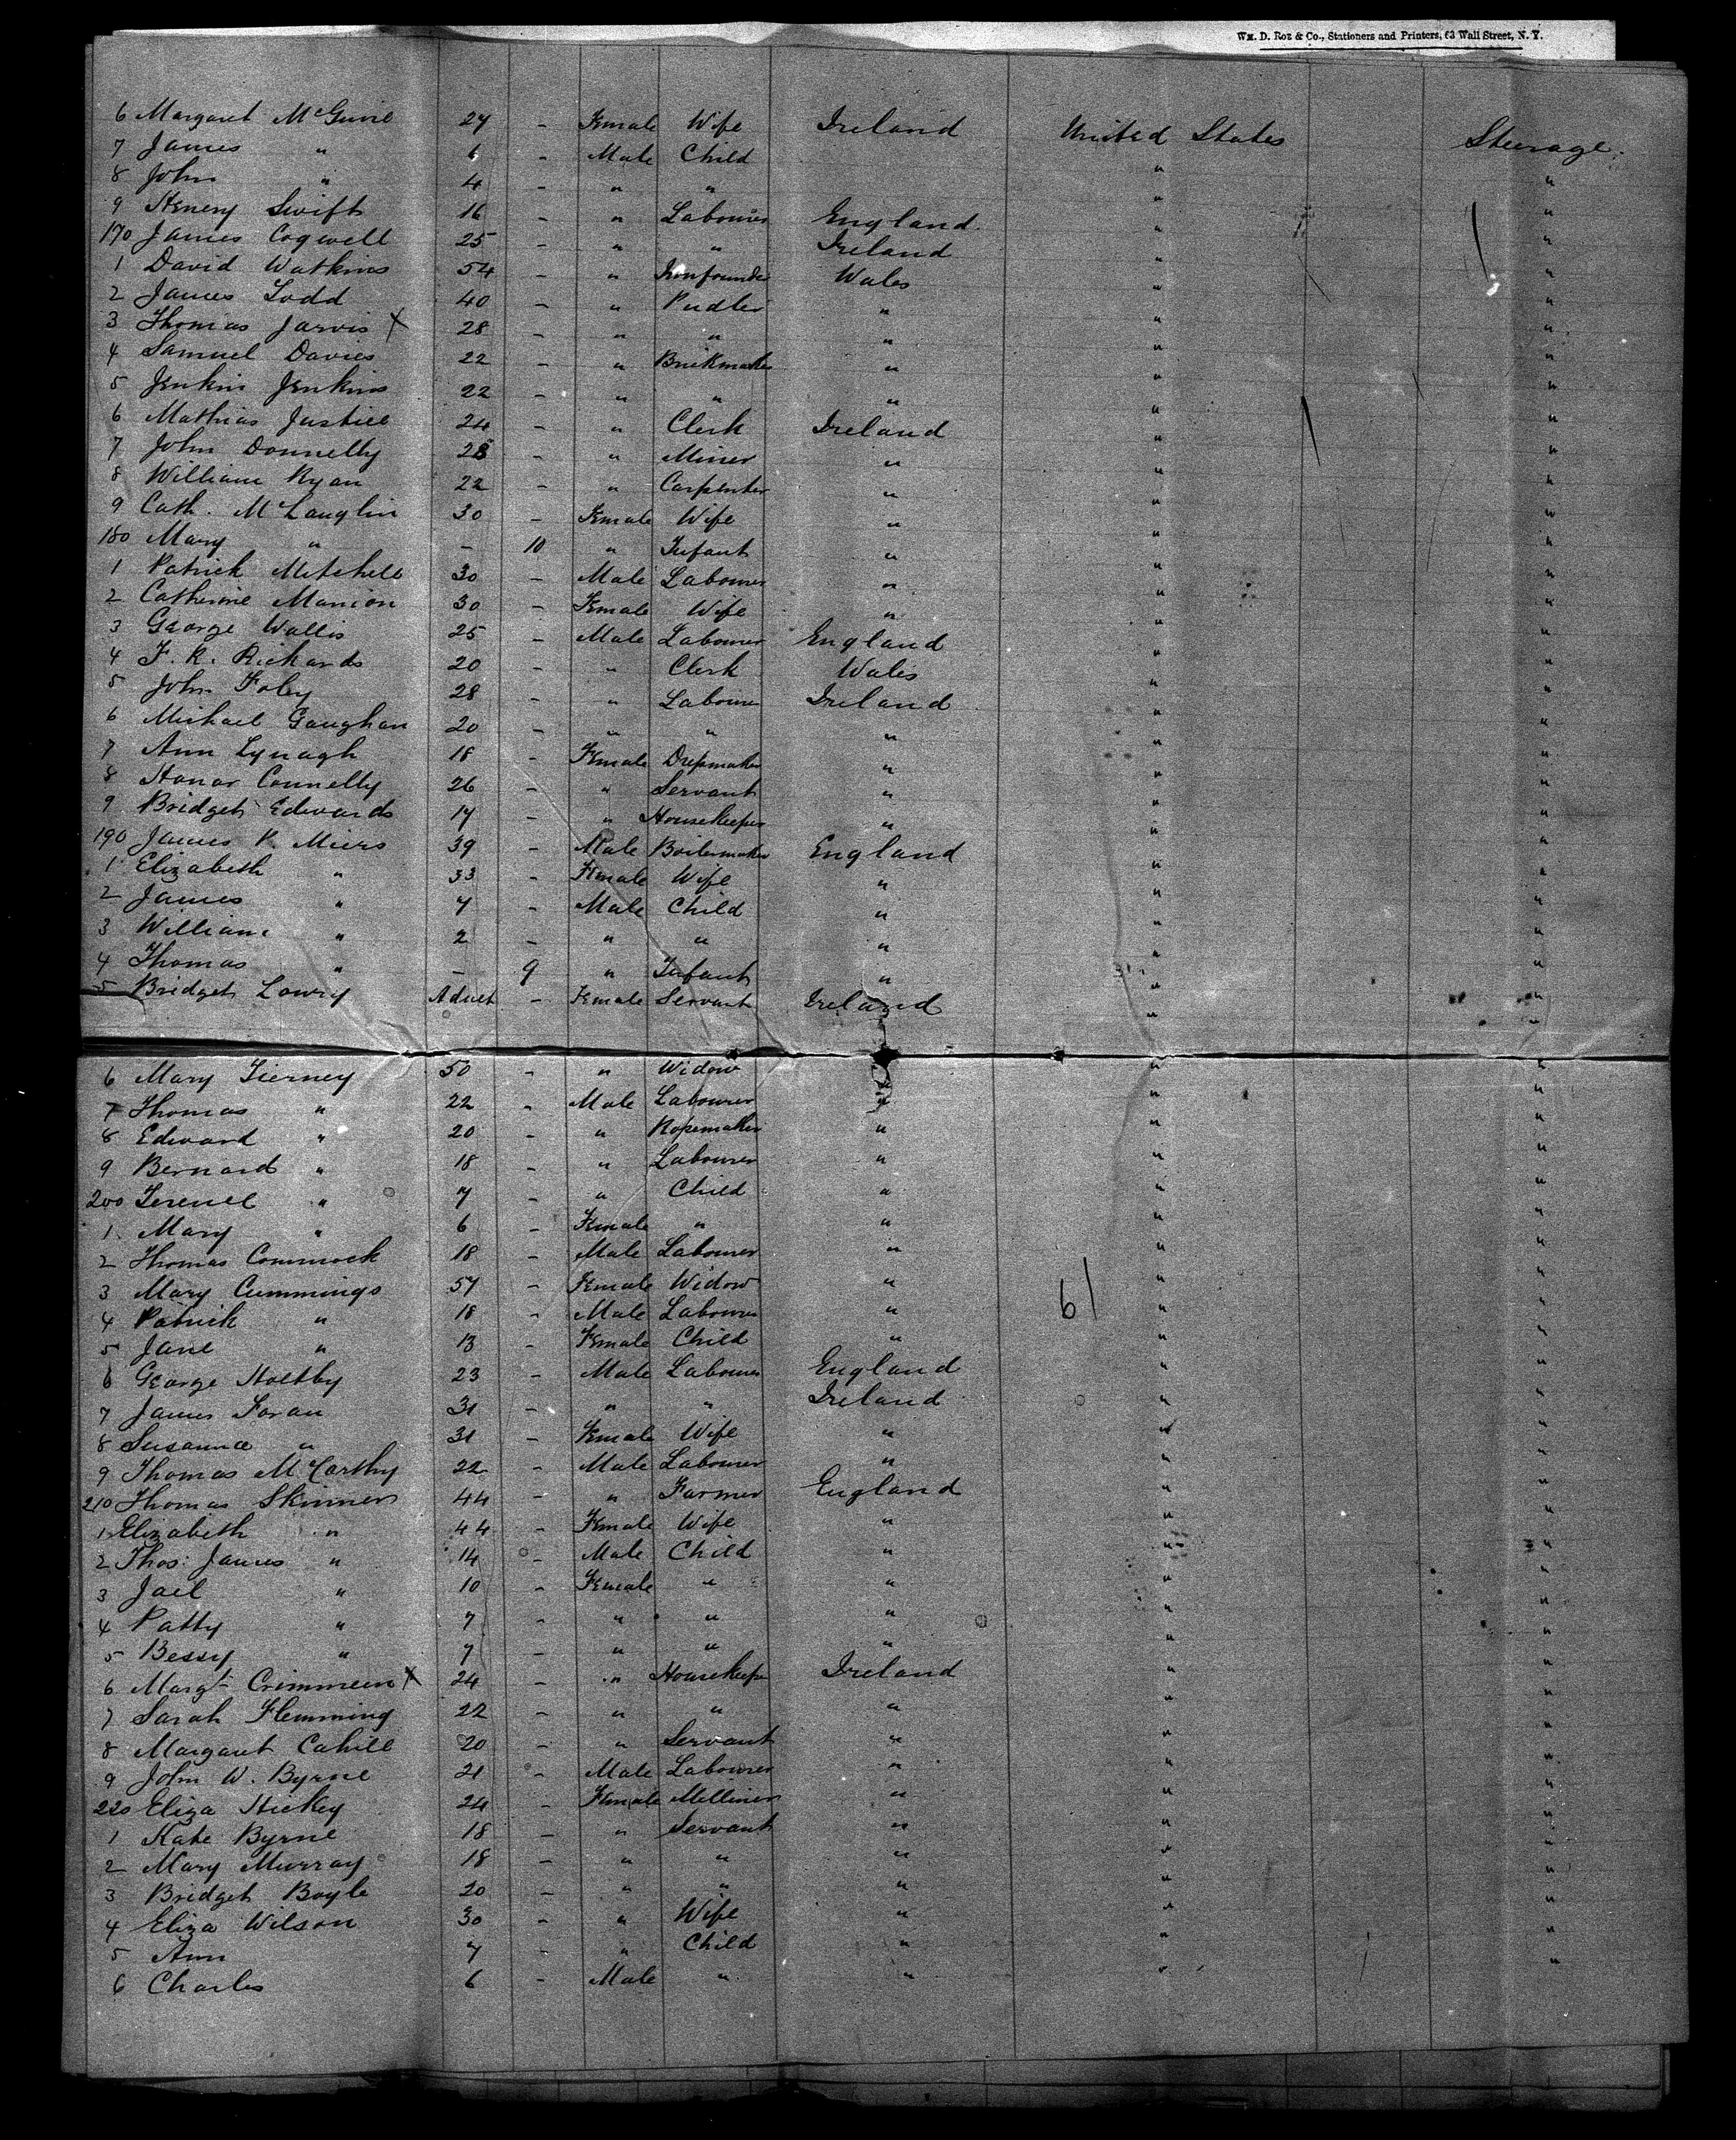 Wm. D. Roe & Co., Stationers and Printers, 63 Wall Street, N. Y.
6 Margaret McGuire 27 - Female Wife Ireland United States Steerage.
7 James " 6 - Male Child " "
8 John " 4 - " " " "
9 Henery Swift 16 - " Labourer England " "
170 James Cogwell 25 - " " Ireland " "
1 David Watkins 54 - " Ironfounder Wales " "
2 James Todd 40 - " Pudler " " "
3 Thomas Jarvis X 28 - " " " " "
4 Samuel Davies 22 - " Brickmaker " " "
5 Jenkin Jenkins 22 - " " " " "
6 Mathias Justice 24 - " Clerk Ireland " "
7 John Donnelly 28 - " Miner " " "
8 William Ryan 22 - " Carpenter " " "
9 Cath. McLauglin 30 - Female Wife " " "
180 Mary " - 10 " Infant " " "
1 Patrick Mitchell 30 - Male Labourer " " "
2 Catherine Manion 30 - Female Wife " " "
3 George Wallis 25 - Male Labourer England " "
4 F. R. Rickards 20 - " Clerk Wales " "
5 John Foley 28 - " Labourer Ireland " "
6 Michael Gaughan 20 - " " " " "
7 Ann Lynagh 18 - Female Dressmaker " " "
8 Honor Connelly 26 - " Servant " " "
9 Bridget Edwards 17 - " Housekeeper " " "
190 James P. Miers 39 - Male Boilermaker England " "
1 Elizabeth " 33 - Female Wife " " "
2 James " 7 - Male Child " " "
3 William " 2 - " " " " "
4 Thomas " - 9 " Infant " " "
5 Bridget Lowry Adult - Female Servant Ireland " "
6 Mary Tierney 50 - " Widow " "
7 Thomas " 22 - Male Labourer " " "
8 Edward " 20 - " Ropemaker " " "
9 Bernard " 18 - " Labourer " " "
200 Terence " 7 - " Child " " "
1 Mary " 6 - Female " " " "
2 Thomas Commock 18 - Male Labourer " " "
3 Mary Cummings 57 - Female Widow " 61 " "
4 Patrick " 18 - Male Labourer " " "
5 Jane " 13 - Female Child " " "
6 George Holtby 23 - Male Labourer England " "
7 James Foran 31 - " " Ireland " "
8 Susanna " 31 - Female Wife " " "
9 Thomas McCarthy 22 - Male Labourer " " "
210 Thomas Skinner 44 - " Farmer England " "
1 Elizabeth " 44 - Female Wife " " "
2 Thos: James " 14 - Male Child " " "
3 Jael " 10 - Female " " " "
4 Patty " 7 - " " " " "
5 Bessy " 7 - " " " " "
6 Margt Crimmeen X 24 - " Housekeeper Ireland " "
7 Sarah Flemming 22 - " " " " "
8 Margaret Cahill 20 - " Servant " " "
9 John W. Byrne 21 - Male Labourer " " "
220 Eliza Hickey 24 - Female Milliner " " "
1 Kate Byrne 18 - " Servant " " "
2 Mary Murray 18 - " " " " "
3 Bridget Boyle 20 - " " " " "
4 Eliza Wilson 30 - " Wife " " "
5 Ann 7 - " Child " " "
6 Charles 6 - Male " " " "